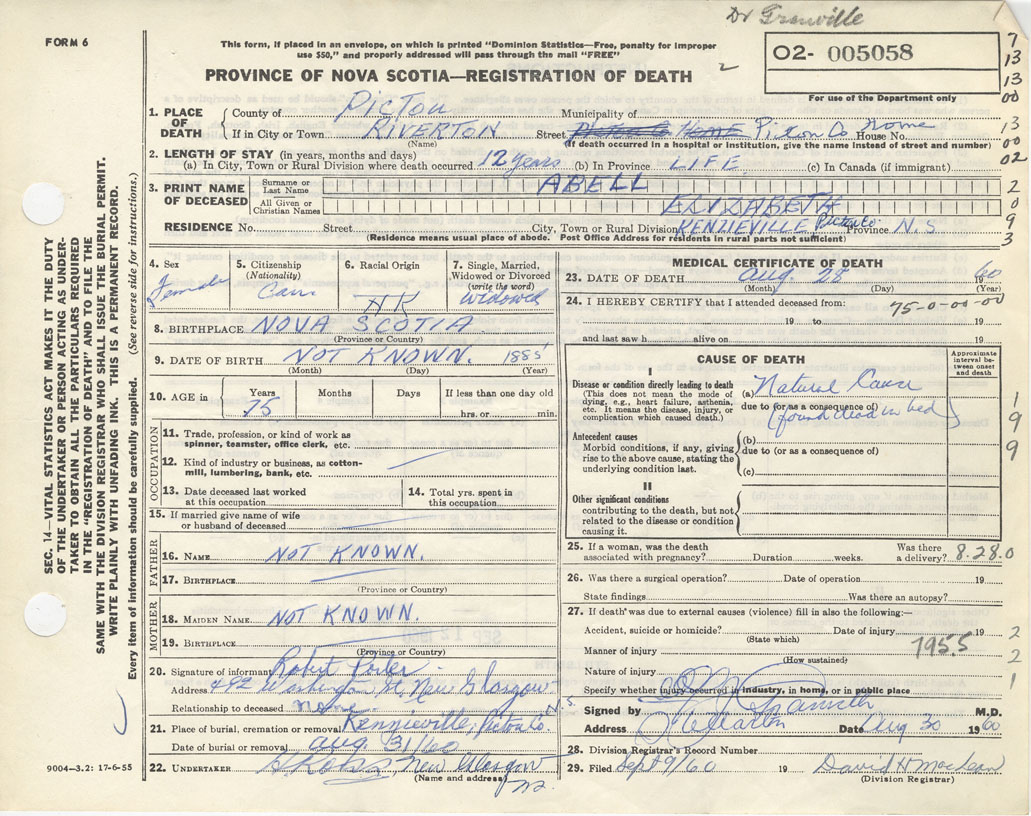 Dr Granville
FORM 6
This form, if placed in an envelope, on which is printed "Dominion Statistics—Free, penalty for improper
use $50," and properly addressed will pass through the mail "FREE"
PROVINCE OF NOVA SCOTIA—REGISTRATION OF DEATH
O2- 005058
For use of the Department only
7
13
13
00
13
00
02
2
0
9
3
SEC. 14—VITAL STATISTICS ACT MAKES IT THE DUTY
OF THE UNDERTAKER OR PERSON ACTING AS UNDER-
TAKER TO OBTAIN ALL THE PARTICULARS REQUIRED
IN THE "REGISTRATION OF DEATH" AND TO FILE THE
SAME WITH THE DIVISION REGISTRAR WHO SHALL ISSUE THE BURIAL PERMIT.
WRITE PLAINLY WITH UNFADING INK. THIS IS A PERMANENT RECORD.
Every item of information should be carefully supplied. (See reverse side for instructions.)
1. PLACE OF DEATH
County of PICTOU Municipality of
If in City or Town RIVERTON Street HOME Picton Co Home House No.
(Name) (If death occurred in a hospital or institution, give the name instead of street and number)
2. LENGTH OF STAY (in years, months and days)
(a) In City, Town or Rural Division where death occurred 12 years (b) In Province LIFE (c) In Canada (if immigrant)
3. PRINT NAME OF DECEASED
Surname or Last Name ABELL
All Given or Christian Names ELIZABETH
RESIDENCE No. Street City, Town or Rural Division KENZIEVILLE Pictou Co Province N.S
(Residence means usual place of abode. Post Office Address for residents in rural parts not sufficient)
4. Sex Female
5. Citizenship (Nationality) Can
6. Racial Origin NK
7. Single, Married, Widowed or Divorced (write the word) Widowed
8. BIRTHPLACE NOVA SCOTIA
(Province or Country)
9. DATE OF BIRTH NOT KNOWN. 1885
(Month) (Day) (Year)
10. AGE in Years 75 Months Days If less than one day old
hrs. or min.
OCCUPATION
11. Trade, profession, or kind of work as
spinner, teamster, office clerk, etc.
12. Kind of industry or business, as cotton-
mill, lumbering, bank, etc.
13. Date deceased last worked
at this occupation
14. Total yrs. spent in
this occupation
15. If married give name of wife
or husband of deceased
FATHER
16. NAME NOT KNOWN.
17. BIRTHPLACE
(Province or Country)
MOTHER
18. MAIDEN NAME NOT KNOWN.
19. BIRTHPLACE
(Province or Country)
20. Signature of informant Robert Porter
Address 492 Washington St, New Glasgow N.S.
Relationship to deceased none
21. Place of burial, cremation or removal Kenzieville, Pictou Co.
Date of burial or removal Aug 31/60
22. UNDERTAKER New Glasgow
(Name and address) NS
9004—3.2: 17-6-55
MEDICAL CERTIFICATE OF DEATH
23. DATE OF DEATH Aug. 28 60
(Month) (Day) (Year)
24. I HEREBY CERTIFY that I attended deceased from: 75-0-00-00
19 to 19
and last saw h alive on 19
CAUSE OF DEATH
Approximate interval between onset and death
I
Disease or condition directly leading to death
(This does not mean the mode of
dying, e.g., heart failure, asthenia,
etc. It means the disease, injury, or
complication which caused death.)
(a) Natural Cause
due to (or as a consequence of)
(found dead in bed)
Antecedent causes
Morbid conditions, if any, giving
rise to the above cause, stating the
underlying condition last.
(b)
due to (or as a consequence of)
(c)
II
Other significant conditions
contributing to the death, but not
related to the disease or condition
causing it.
1
9
9
25. If a woman, was the death
associated with pregnancy? Duration weeks. Was there
a delivery? 8.28.0
26. Was there a surgical operation? Date of operation 19
State findings Was there an autopsy?
27. If death was due to external causes (violence) fill in also the following:—
Accident, suicide or homicide? Date of injury 19
(State which)
Manner of injury 795.5
(How sustained)
Nature of injury
Specify whether injury occurred in industry, in home, or in public place
2
2
1
Signed by M.D.
Address Date Aug 30 1960
28. Division Registrar's Record Number
29. Filed Sept 9/60 19 David H MacLean
(Division Registrar)